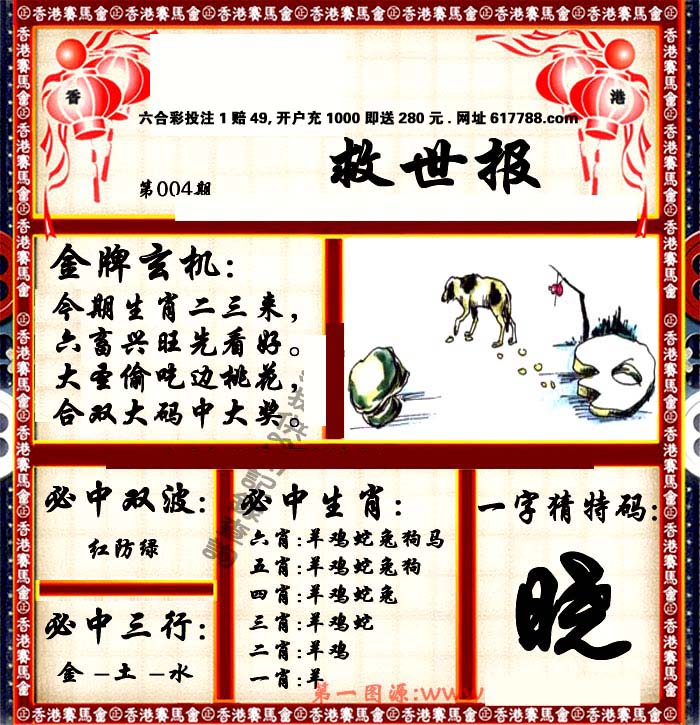 香港賽馬會㊣香港賽馬會㊣香港賽馬會㊣香港賽馬會㊣香港賽馬會㊣香港賽馬會
香
港
六合彩投注1赔49,开户充1000即送280元.网址617788.com
救世报
第004期
金牌玄机:
今期生肖二三来,
六畜兴旺先看好。
大圣偷吃边桃花,
合双大码中大奖。
必中双波:
红防绿
必中三行:
金-土-水
必中生肖:
六肖:羊鸡蛇兔狗马
五肖:羊鸡蛇兔狗
四肖:羊鸡蛇兔
三肖:羊鸡蛇
二肖:羊鸡
一肖:羊
一字猜特码:
晓
第一图源:www